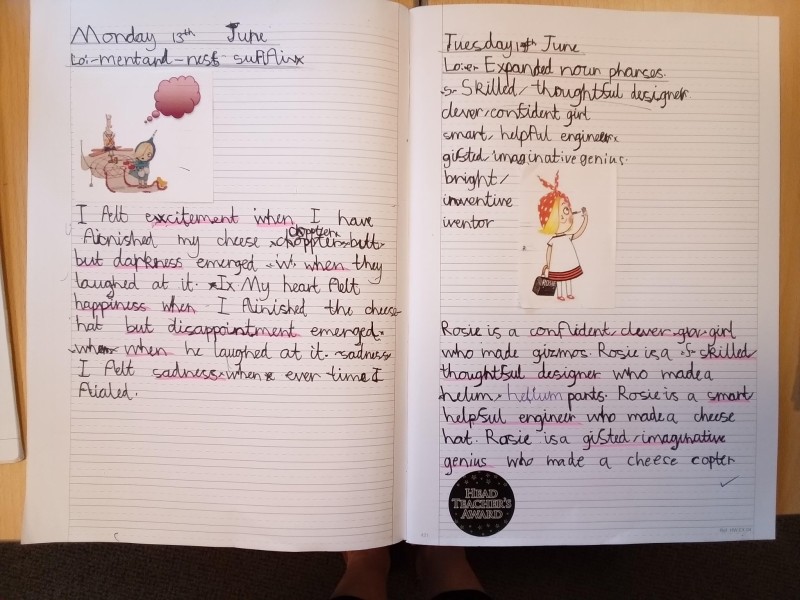 Monday 13th June
Loi-mentand-ness suffix
I felt excitement when I have
chopter
finished my cheese chopter butt
but darkness emerged when they
laughed at it. My heart felt
happiness when I finished the cheese
hat but disappointment emerged
when when he laughed at it. sadness
I felt sadness when ever time I
failed.
Tuesday 14th June
Expanded noun pharses.
Skilled, thoughtful designer
clever, confident girl
smart, helpful engineer
gifted imaginative genius.
bright,
inventive
iventor
Rosie is a confident, clever girl
who made gizmos. Rosie is a skilled,
thoughtful designer who made a
helium pants. Rosie is a smart,
helpful engineer who made a cheese
hat. Rosie is a gifted, imaginative
genius who made a cheese copter
HEAD
TEACHER'S
AWARD